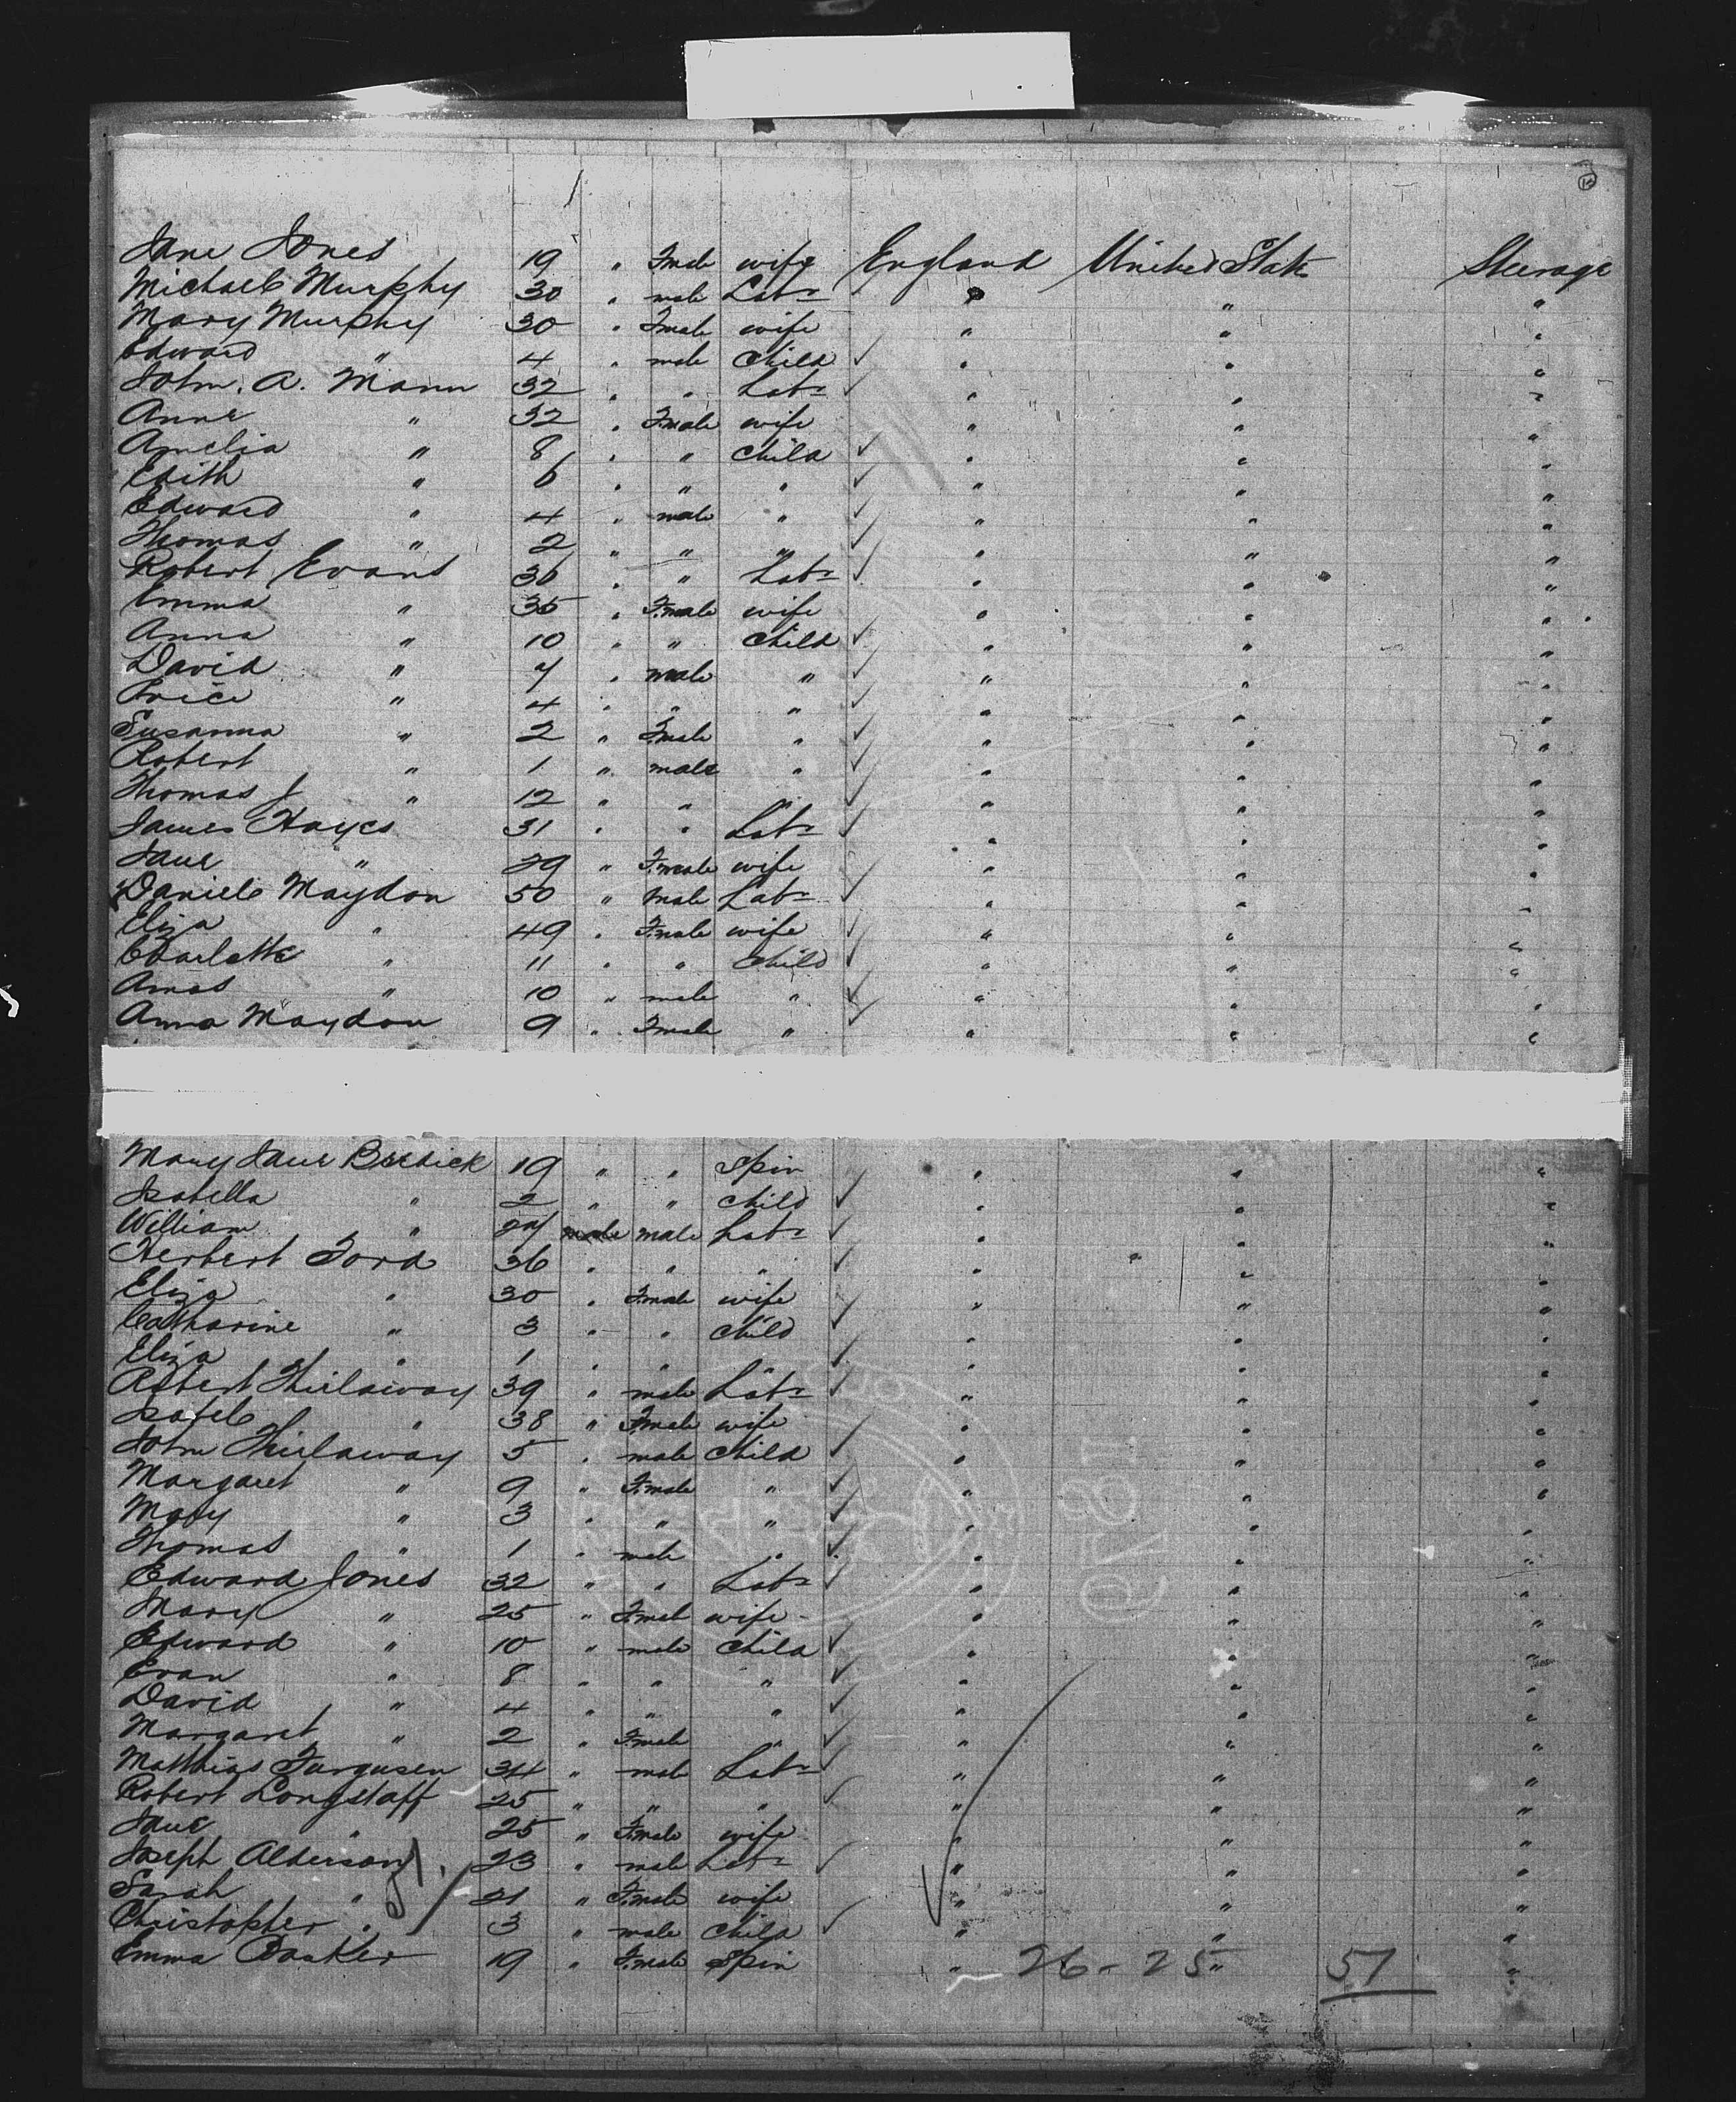 Jane Jones 19 " Fmale wife England United State Steerage
Michael Murphy 30 " male Labr " " "
Mary Murphy 30 " Fmale wife " " "
Edward " 4 " male Child " " "
John. A. Mann 32 " " Labr " " "
Anne " 32 " Fmale wife " " "
Amelia " 8 " " Child " " "
Edith " 6 " " " " " "
Edward " 4 " male " " " "
Thomas " 2 " " " " " "
Robert Evans 36 " " Labr " " "
Emma " 35 " Female wife " " "
Anna " 10 " " Child " " "
David " 7 " male " " " "
Price " 4 " " " " " "
Susanna " 2 " Fmale " " " "
Robert " 1 " male " " " "
Thomas J " 12 " " " " " "
James Hayes 31 " " Labr " " "
Jane " 29 " Female wife " " "
Daniel Maydon 50 " Male Labr " " "
Eliza " 49 " Fmale wife " " "
Charlotte " 11 " " Child " " "
Amos " 10 " male " " " "
Anna Maydon 9 " Fmale " " " "
Mary Jane 19 " " Spin " " "
Isabella " 2 " " Child " " "
William " 27 male male Labr " " "
Herbert Ford 36 " " " " " "
Eliza " 30 " Fmale wife " " "
Catharine " 3 " " Child " " "
Eliza " 1 " " " " " "
Robert Thirlaway 39 " male Labr " " "
Isabel " 38 " Fmale wife " " "
John Thirlaway 5 " male Child " " "
Margaret " 9 " Fmale " " " "
Mary " 3 " " " " " "
Thomas " 1 " male " " " "
Edward Jones 32 " " Labr " " "
Mary " 25 " Fmale wife " " "
Edward " 10 " male Child " " "
Evan " 8 " " " " " "
David " 4 " " " " " "
Margaret " 2 " Fmale " " " "
Matthias Fargusen 34 " male Labr " " "
Robert Longstaff 25 " " " " " "
Jane " 25 " Fmale wife " " "
Joseph Alderson 23 " male Labr " " "
Sarah " 21 " Fmale wife " " "
Christopher " 3 " male Child " " "
Emma Basker 19 " Fmale Spin " 26 - 25 " 51 "